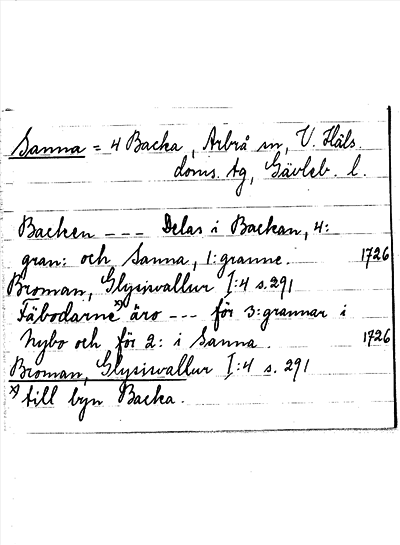 Sanna = 4 Backa, Arbrå sn, V. Häls.
doms. tg, Gävleb. l.
Backen --- Delas i Backan, 4:
gran: och Sanna, 1: granne. 1726
Broman, Glysisvallur I:4 s. 291
Fäbodarne x) äro --- för 3: grannar i
Nybo och för 2: i Sanna. 1726
Broman, Glysisvallur I:4 s. 291
x) till byn Backa.